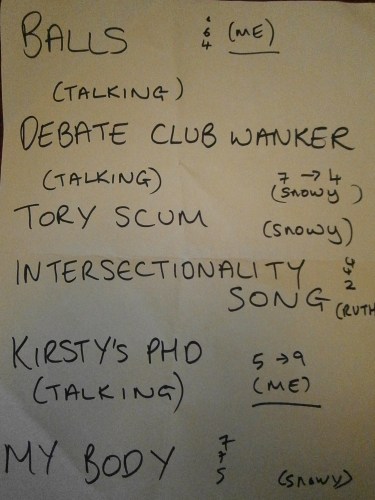 BALLS 6 → 4 (ME)
(TALKING)
DEBATE CLUB WANKER
(TALKING) 7 → 4
(SNOWY)
TORY SCUM (SNOWY)
INTERSECTIONALITY
SONG (RUTH
KIRSTY'S PHD 5 → 9
(TALKING) (ME)
MY BODY 7 5 (SNOWY)